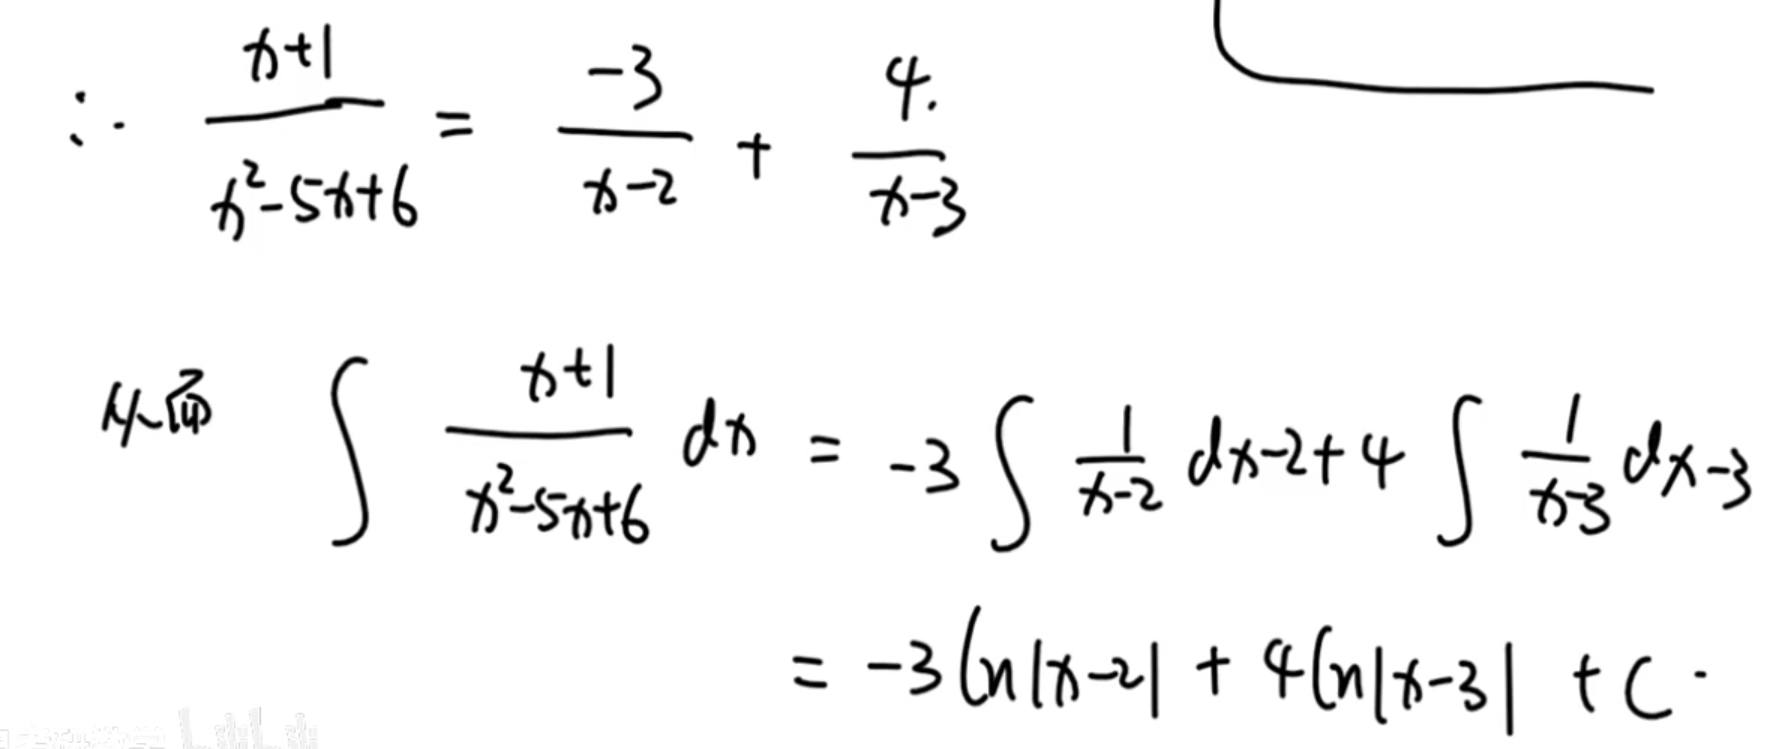 ∴ (x+1)/(x²-5x+6) = -3/(x-2) + 4/(x-3)
从而 ∫ (x+1)/(x²-5x+6) dx = -3∫ 1/(x-2) dx-2 + 4∫ 1/(x-3) dx-3
= -3ln|x-2| + 4ln|x-3| + C.